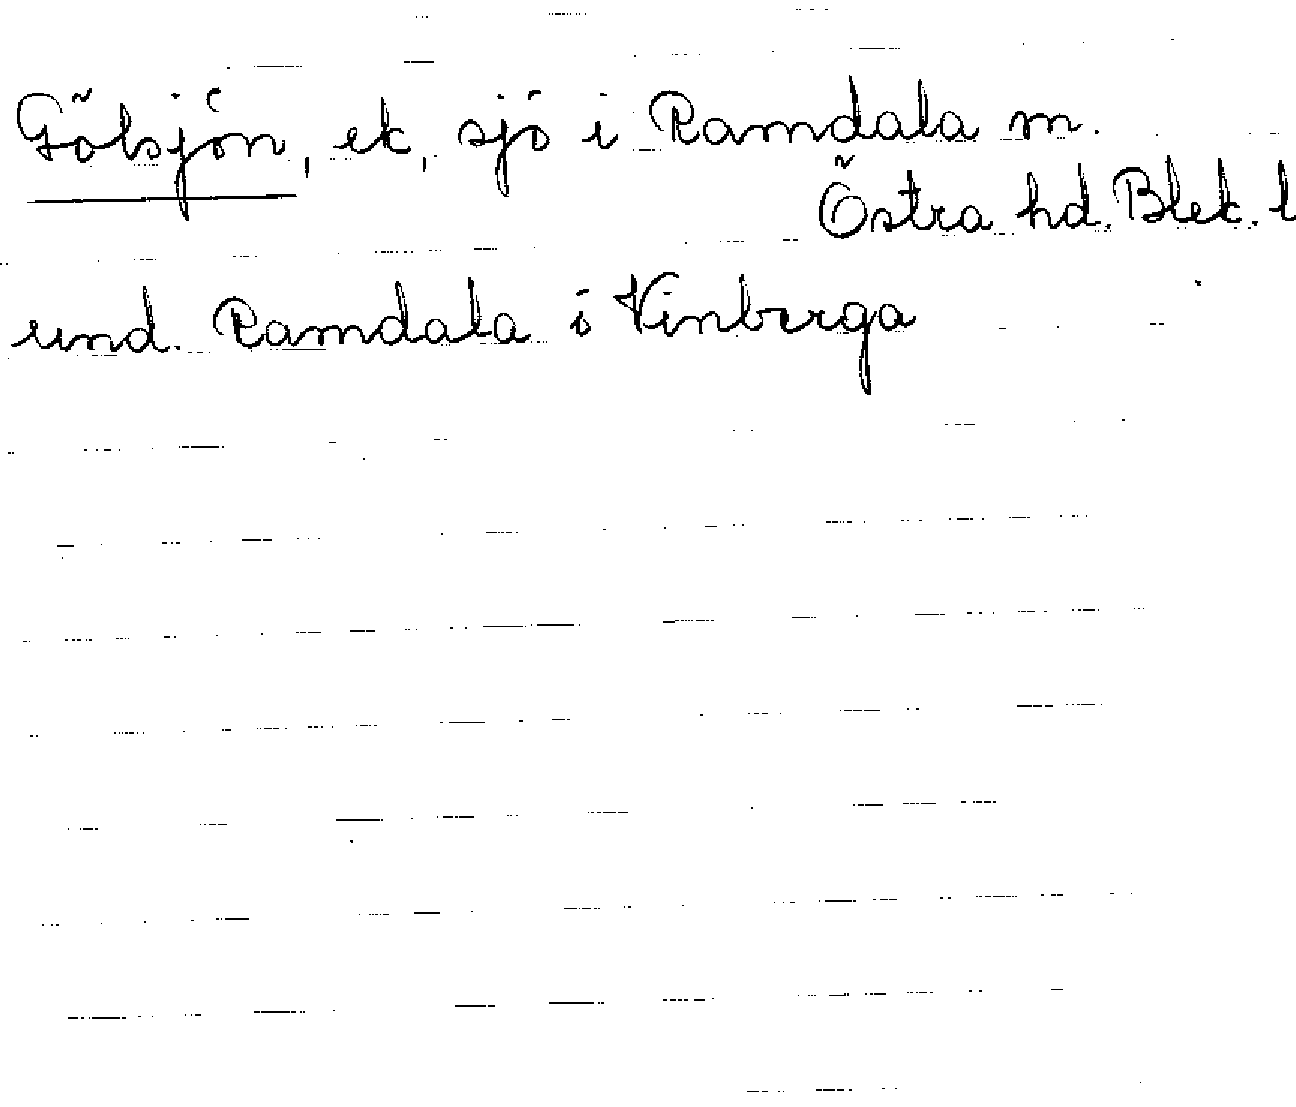 Gölsjön, ek, sjö i Ramdala sn.
Östra hd. Blek. l
und. Ramdala ö Vinberga